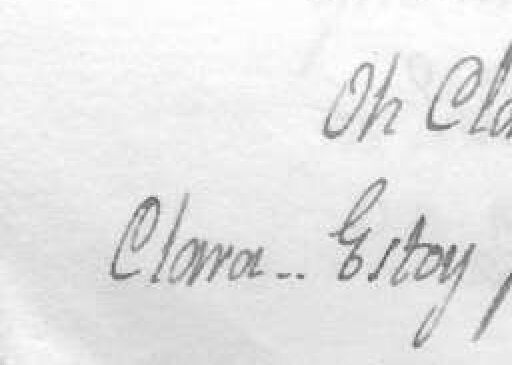 Oh Cla
Clara.. Estoy